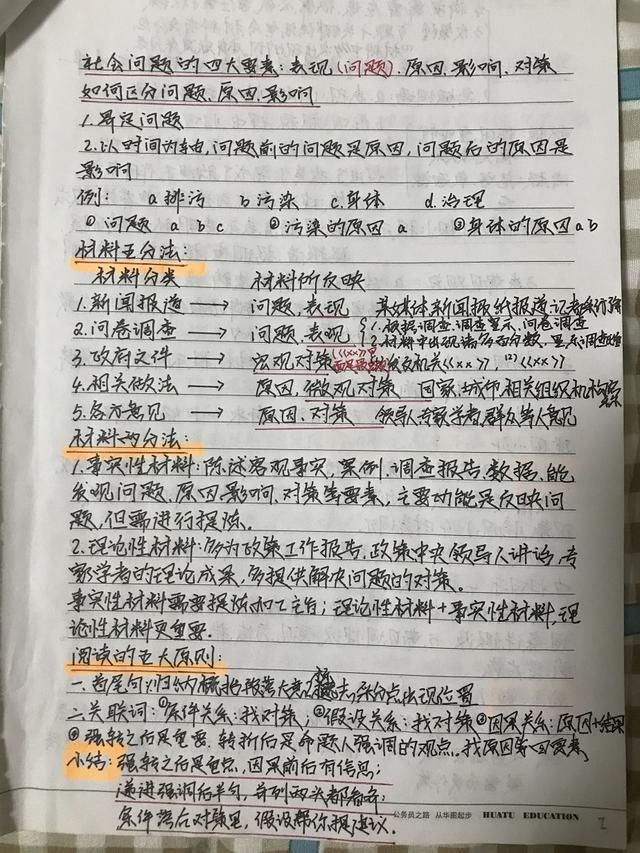 社会问题的四大要素：表现(问题)、原因、影响、对策
如何区分问题、原因、影响
1.界定问题
2.以时间为轴,问题前的问题是原因,问题后的原因是
影响
例： a排污 b污染 c.身体 d.治理
①问题 a b c ②污染的原因 a ③身体的原因 a b
材料五分法：
材料分类 材料所反映
1.新闻报道 → 问题、表现 某媒体新闻报纸报道记者
2.问卷调查 → 问题、表现 {1.根据调查,调查显示、问卷调查
2.材料中出现诸多百分数,
3.政府文件 → 宏观对策 机关《xx》，(2)《xx》
4.相关做法 → 原因、微观对策 国家、城市、相关组织机构
5.各方意见 → 原因、对策 领导人专家学者,群众等人意见
材料两分法：
1.事实性材料：陈述客观事实,案例、调查报告、数据、能
发现问题、原因、影响、对策等要素,主要功能是反映问
题,但需进行提炼.
2.理论性材料：多为政策工作报告、政策中央领导人讲话,专
家学者的理论成果,多提供解决问题的对策。
事实性材料需要提炼加工主旨；理论性材料+事实性材料,理
论性材料更重要.
阅读的五大原则：
一.首尾句:归纳概括段落大意,
二.关联词：①条件关系：找对策；②假设关系：找对策③因果关系：原因+结果
④强转之后是重要、转折后是命题人强调的观点、找原因等四要素
小结：强转之后是重点,因果前后有信息；
递进强调后半句,并列两头都
条件落后对策里,假设帮你提建议.
公务员之路 从华图起步 HUATU EDUCATION